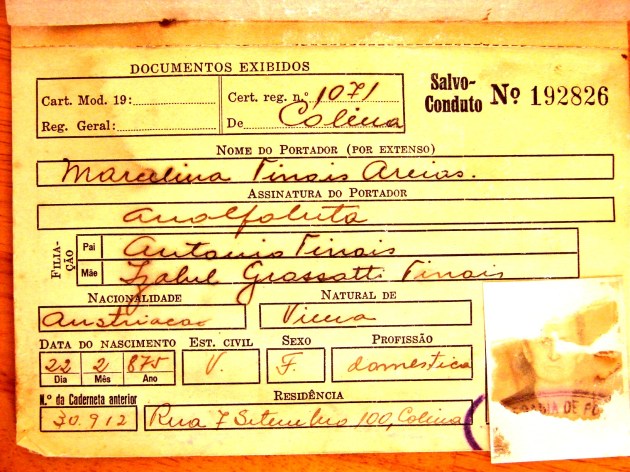 DOCUMENTOS EXIBIDOS
Cart. Mod. 19:
Cert. reg. n.º 1071
Reg. Geral:
De Colina
Salvo-Conduto Nº 192826
NOME DO PORTADOR (POR EXTENSO)
Marcelina Tinais Areias.
ASSINATURA DO PORTADOR
Analfabeta
FILIAÇÃO
Pai Antonio Tinais
Mãe Izabel Grassatti Tinais
NACIONALIDADE NATURAL DE
Austriaca Viena
DATA DO NASCIMENTO EST. CIVIL SEXO PROFISSÃO
22 2 875 V. F. domestica
Dia Mês Ano
N.º da Caderneta anterior RESIDÊNCIA
30.912 Rua 7 Setembro 100, Colina